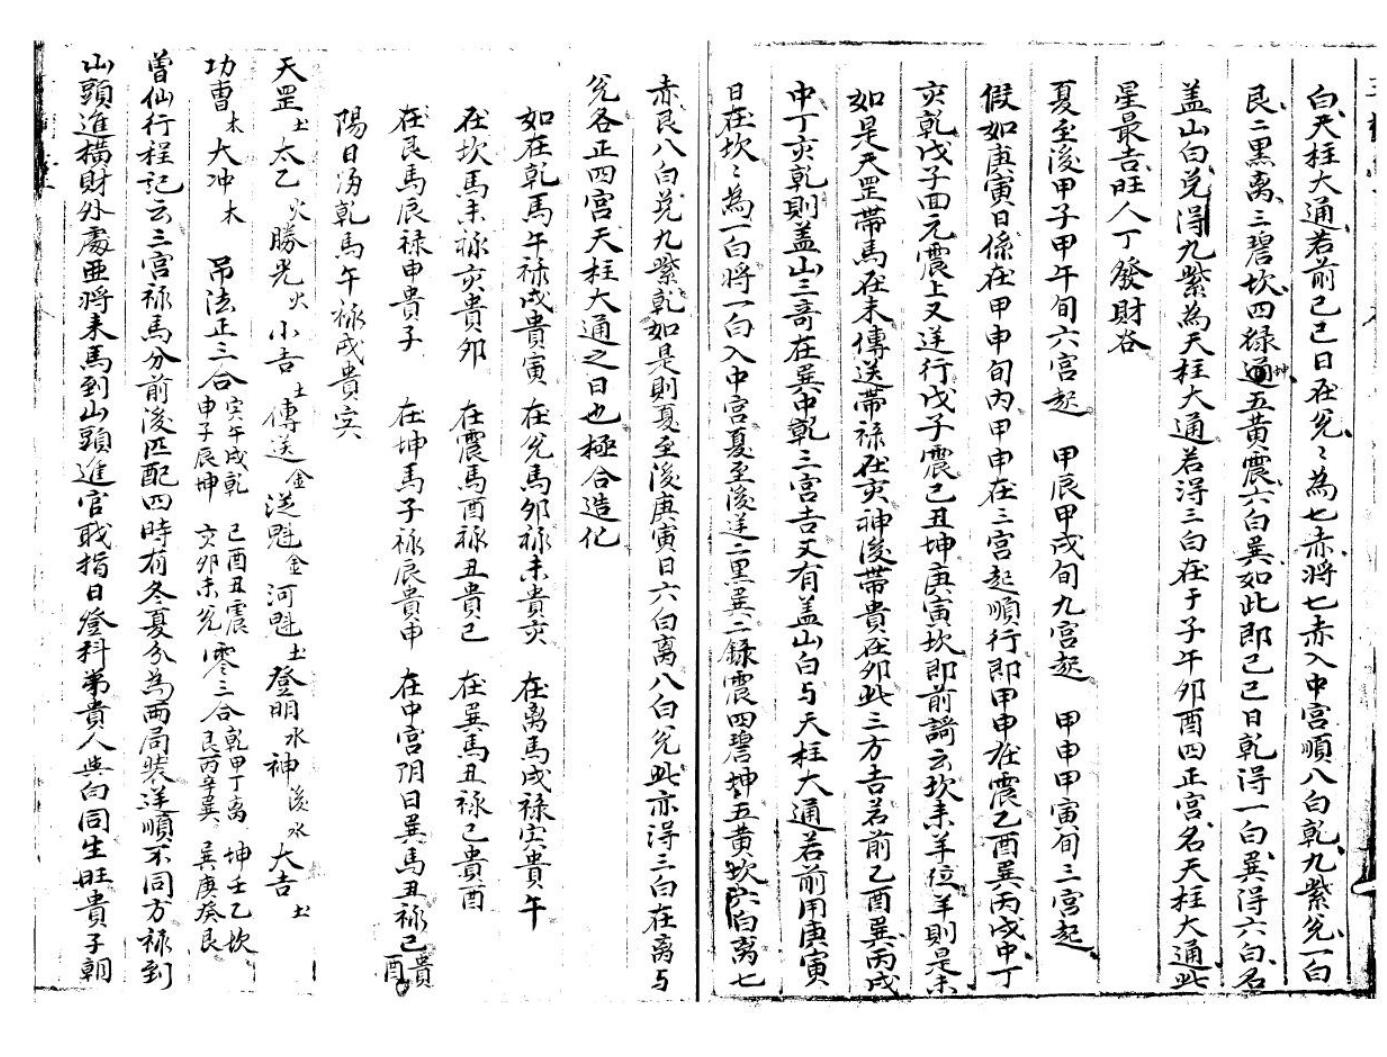 白天柱大通若前己巳日在兊〻為七赤将七赤入中宫順八白乾九紫兊一白
艮二黒离三碧坎四緑坤通五黄震六白巽如此即己巳日乾得一白巽得六白名
盖山白兊得九紫為天柱大通若得三白在于子午卯酉四正宫名天柱大通此
星最吉旺人丁發財谷
夏至後甲子甲午旬六宫起 甲辰甲戌旬九宫起 甲申甲寅旬三宫起
假如庚寅日係在甲申旬内甲申在三宫起順行即甲申在震乙酉巽丙戌中丁
亥乾戊子面元震上又逆行戊子震己丑坤庚寅坎即前謌云坎未羊位羊則是未
如是天罡帶馬在未傳送帶禄在亥神後帶貴在卯此三方吉若前乙酉巽丙戌
中丁亥乾則盖山三竒在巽中乾三宫吉又有盖山白与天柱大通若前用庚寅
日在坎〻為一白将一白入中宫夏至後逆二黒巽二録震四碧坤五黄坎六白离七
赤艮八白兊九紫乾如是則夏至後庚寅日六白离八白兊此亦得三白在离与
兊各正四宫天柱大通之日也極合造化
如在乾馬午禄戌貴寅 在兊馬卯禄未貴亥 在离馬戌禄寅貴午
在坎馬未禄亥貴卯 在震馬酉禄丑貴巳 在巽馬丑禄巳貴酉
在艮馬辰禄申貴子 在坤馬子禄辰貴申 在中宫阴日巽馬丑禄巳貴酉
陽日游乾馬午禄戌貴寅
天罡土 太乙火 勝光火 小吉土 傳送金 從魁金 河魁土 登明水 神後水 大吉土
功曹木 大冲木 吊法正三合寅午戌乾 巳酉丑震 申子辰坤 亥卯未兊 零三合乾甲丁离 坤壬乙坎 艮丙辛巽 巽庚癸艮
曽仙行程記云三宫禄馬分前後匹配四時有冬夏分為兩局裝逆順不同方禄到
山頭進横財外處亜将来馬到山頭進官戢指日登科弟貴人與白同生旺貴子朝